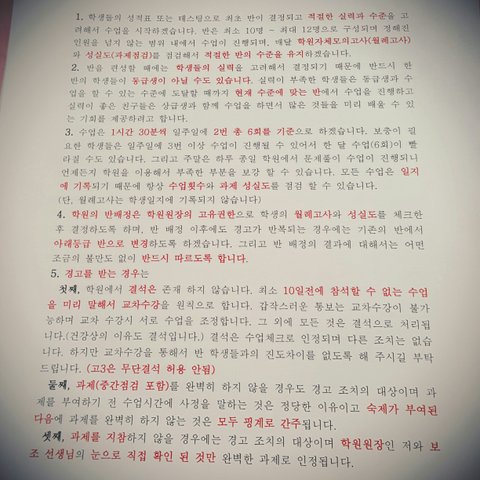 1. 학생들의 성적표 또는 테스팅으로 최초 반이 결정되고 적절한 실력과 수준을 고
려해서 수업을 시작하겠습니다. 반은 최소 10명 - 최대 12명으로 구성되며 정해진
인원을 넘지 않는 범위 내에서 수업이 진행되며, 매달 학원자체모의고사(월례고사)
와 성실도(과제점검)를 점검해서 적절한 반의 수준을 유지하겠습니다.
2. 반을 편성할 때에는 학생들의 실력을 고려해서 결정되기 때문에 반드시 한
반의 학생들이 동급생이 아닐 수도 있습니다. 실력이 부족한 학생들은 동급생과 수
업을 할 수 있는 수준에 도달할 때까지 현재 수준에 맞는 반에서 수업을 진행하고
실력이 좋은 친구들은 상급생과 함께 수업을 하면서 많은 것들을 미리 배울 수 있
는 기회를 제공하려고 합니다.
3. 수업은 1시간 30분씩 일주일에 2번 총 6회를 기준으로 하겠습니다. 보충이 필
요한 학생들은 일주일에 3번 이상 수업이 진행될 수 있어서 한 달 수업(6회)이 빨
라질 수도 있습니다. 그리고 주말은 하루 종일 학원에서 문제풀이 수업이 진행되니
언제든지 학원을 이용해서 부족한 부분을 보강 할 수 있습니다. 모든 수업은 일지
에 기록되기 때문에 항상 수업횟수와 과제 성실도를 점검 할 수 있습니다.
(단, 월례고사는 학생일지에 기록되지 않습니다)
4. 학원의 반배정은 학원원장의 고유권한으로 학생의 월례고사와 성실도를 체크한
후 결정하도록 하며, 반 배정 이후에도 경고가 반복되는 경우에는 기존의 반에서
아래등급 반으로 변경하도록 하겠습니다. 그리고 반 배정의 결과에 대해서는 어떤
조금의 불만도 없이 반드시 따르도록 합니다.
5. 경고를 받는 경우는
첫째, 학원에서 결석은 존재 하지 않습니다. 최소 10일전에 참석할 수 없는 수업
을 미리 말해서 교차수강을 원칙으로 합니다. 갑작스러운 통보는 교차수강이 불가
능하며 교차 수강시 서로 수업을 조정합니다. 그 외에 모든 것은 결석으로 처리됩
니다.(건강상의 이유도 결석입니다.) 결석은 수업체크로 인정되며 다른 조치는 없습니
다. 하지만 교차수강을 통해서 반 학생들과의 진도차이를 없도록 해 주시길 부탁
드립니다. (고3은 무단결석 허용 안됨)
둘째, 과제(중간점검 포함)를 완벽히 하지 않을 경우도 경고 조치의 대상이며 과
제를 부여하기 전 수업시간에 사정을 말하는 것은 정당한 이유이고 숙제가 부여된
다음에 과제를 완벽히 하지 않는 것은 모두 핑계로 간주됩니다.
셋째, 과제를 지참하지 않을 경우에는 경고 조치의 대상이며 학원원장인 저와 보
조 선생님의 눈으로 직접 확인 된 것만 완벽한 과제로 인정됩니다.